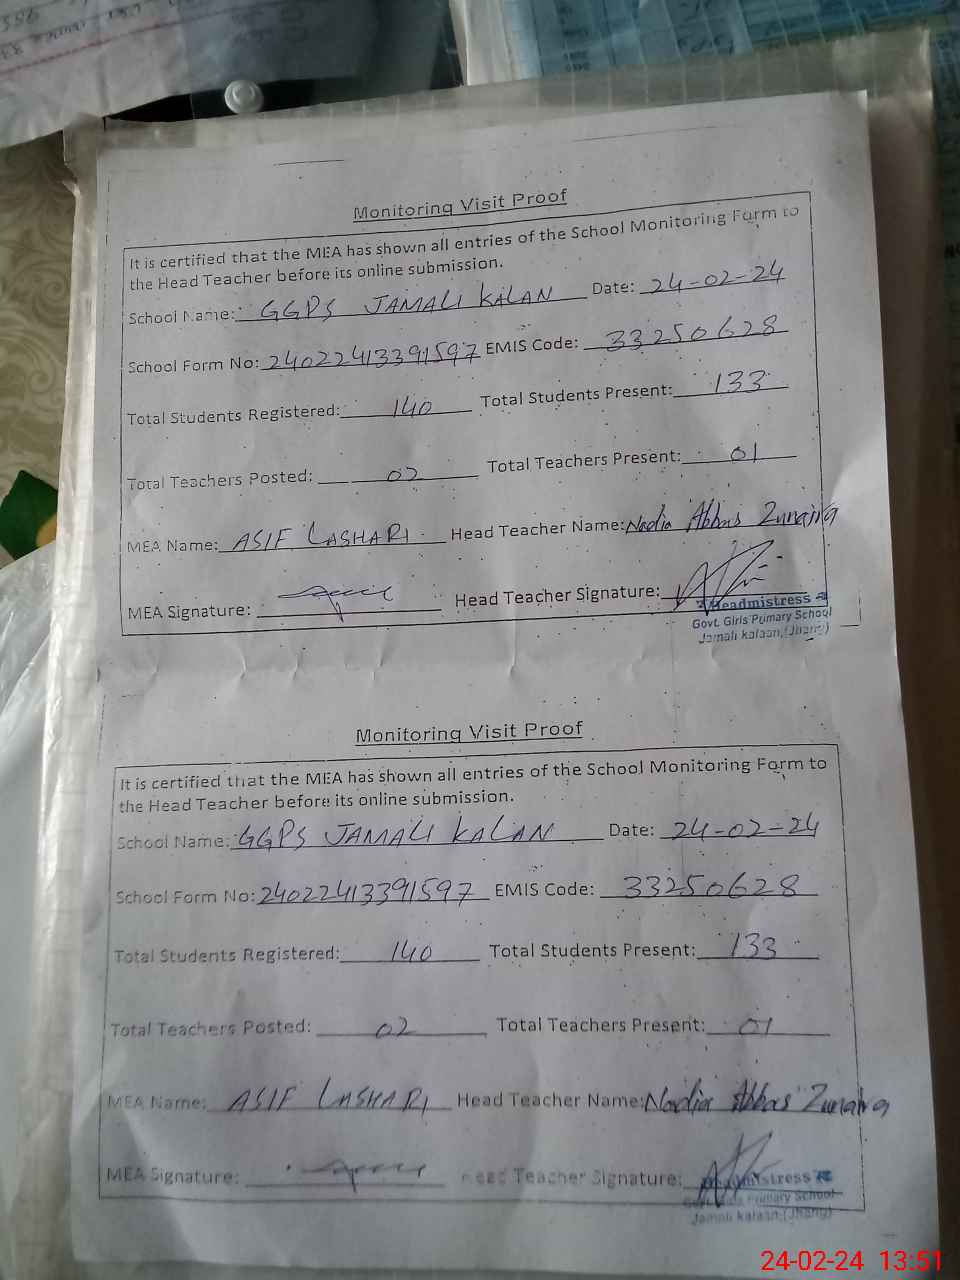 Monitoring Visit Proof
It is certified that the MEA has shown all entries of the School Monitoring Form to
the Head Teacher before its online submission.
School Name: GGPS JAMALI KALAN Date: 24-02-24
School Form No: 24022413391597 EMIS Code: 33250628
Total Students Registered: 140 Total Students Present: 133
Total Teachers Posted: 02 Total Teachers Present: 01
MEA Name: ASIF LASHARI Head Teacher Name: Nadia Abbas Zunaira
MEA Signature: Head Teacher Signature:
Headmistress
Govt. Girls Primary School
Jamali kalaan,(Jhang)
Monitoring Visit Proof
It is certified that the MEA has shown all entries of the School Monitoring Form to
the Head Teacher before its online submission.
School Name: GGPS JAMALI KALAN Date: 24-02-24
School Form No: 24022413391597 EMIS Code: 33250628
Total Students Registered: 140 Total Students Present: 133
Total Teachers Posted: 02 Total Teachers Present: 01
MEA Name: ASIF LASHARI Head Teacher Name: Nadia Abbas Zunaira
MEA Signature: Head Teacher Signature:
Headmistress
Govt. Girls Primary School
Jamali kalaan,(Jhang)
24-02-24 13:51